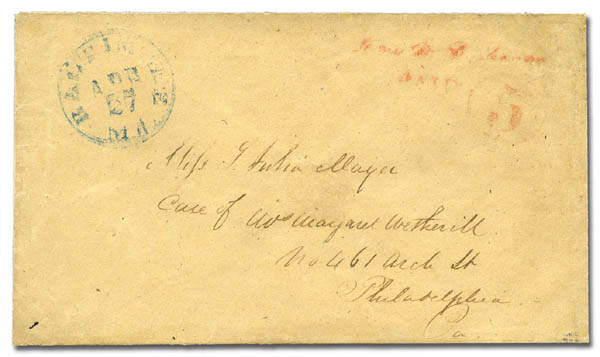 BALTIMORE
APR
27
Md.
PAID
5
Miss J. Julia Mayer
Care of Mrs Margaret Wetherill
No 461 Arch St
Philadelphia
Pa